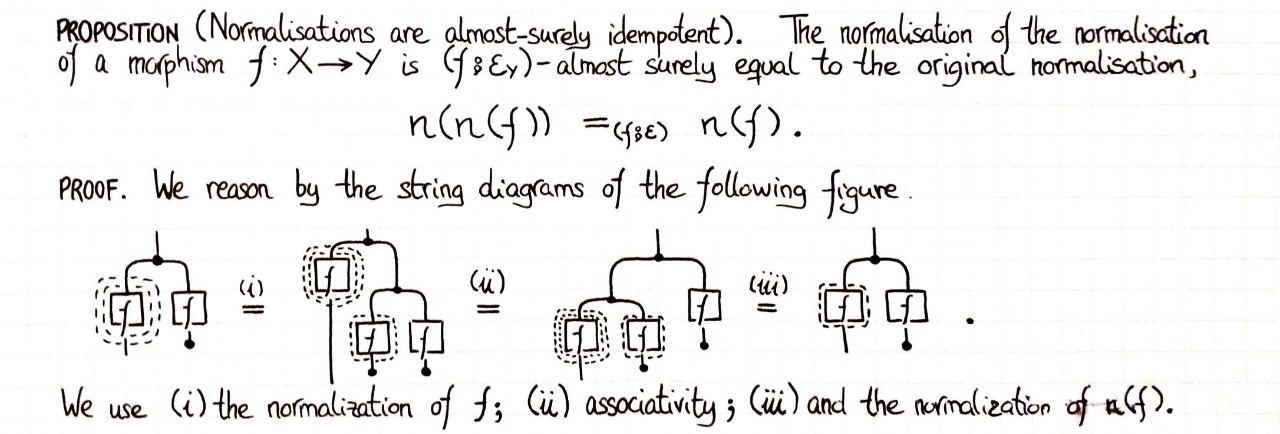 PROPOSITION (Normalisations are almost-surely idempotent). The normalisation
of a morphism f : X → Y is (f ⨟ ε_Y)-almost surely equal to the original normalisation,
n(n(f)) =_(f⨟ε) n(f).
PROOF. We reason by the string diagrams of the following figure.
f f (i) = f f f (ii) = f f f (iii) = f f .
We use (i) the normalization of f; (ii) associativity; (iii) and the normalization of n(f).